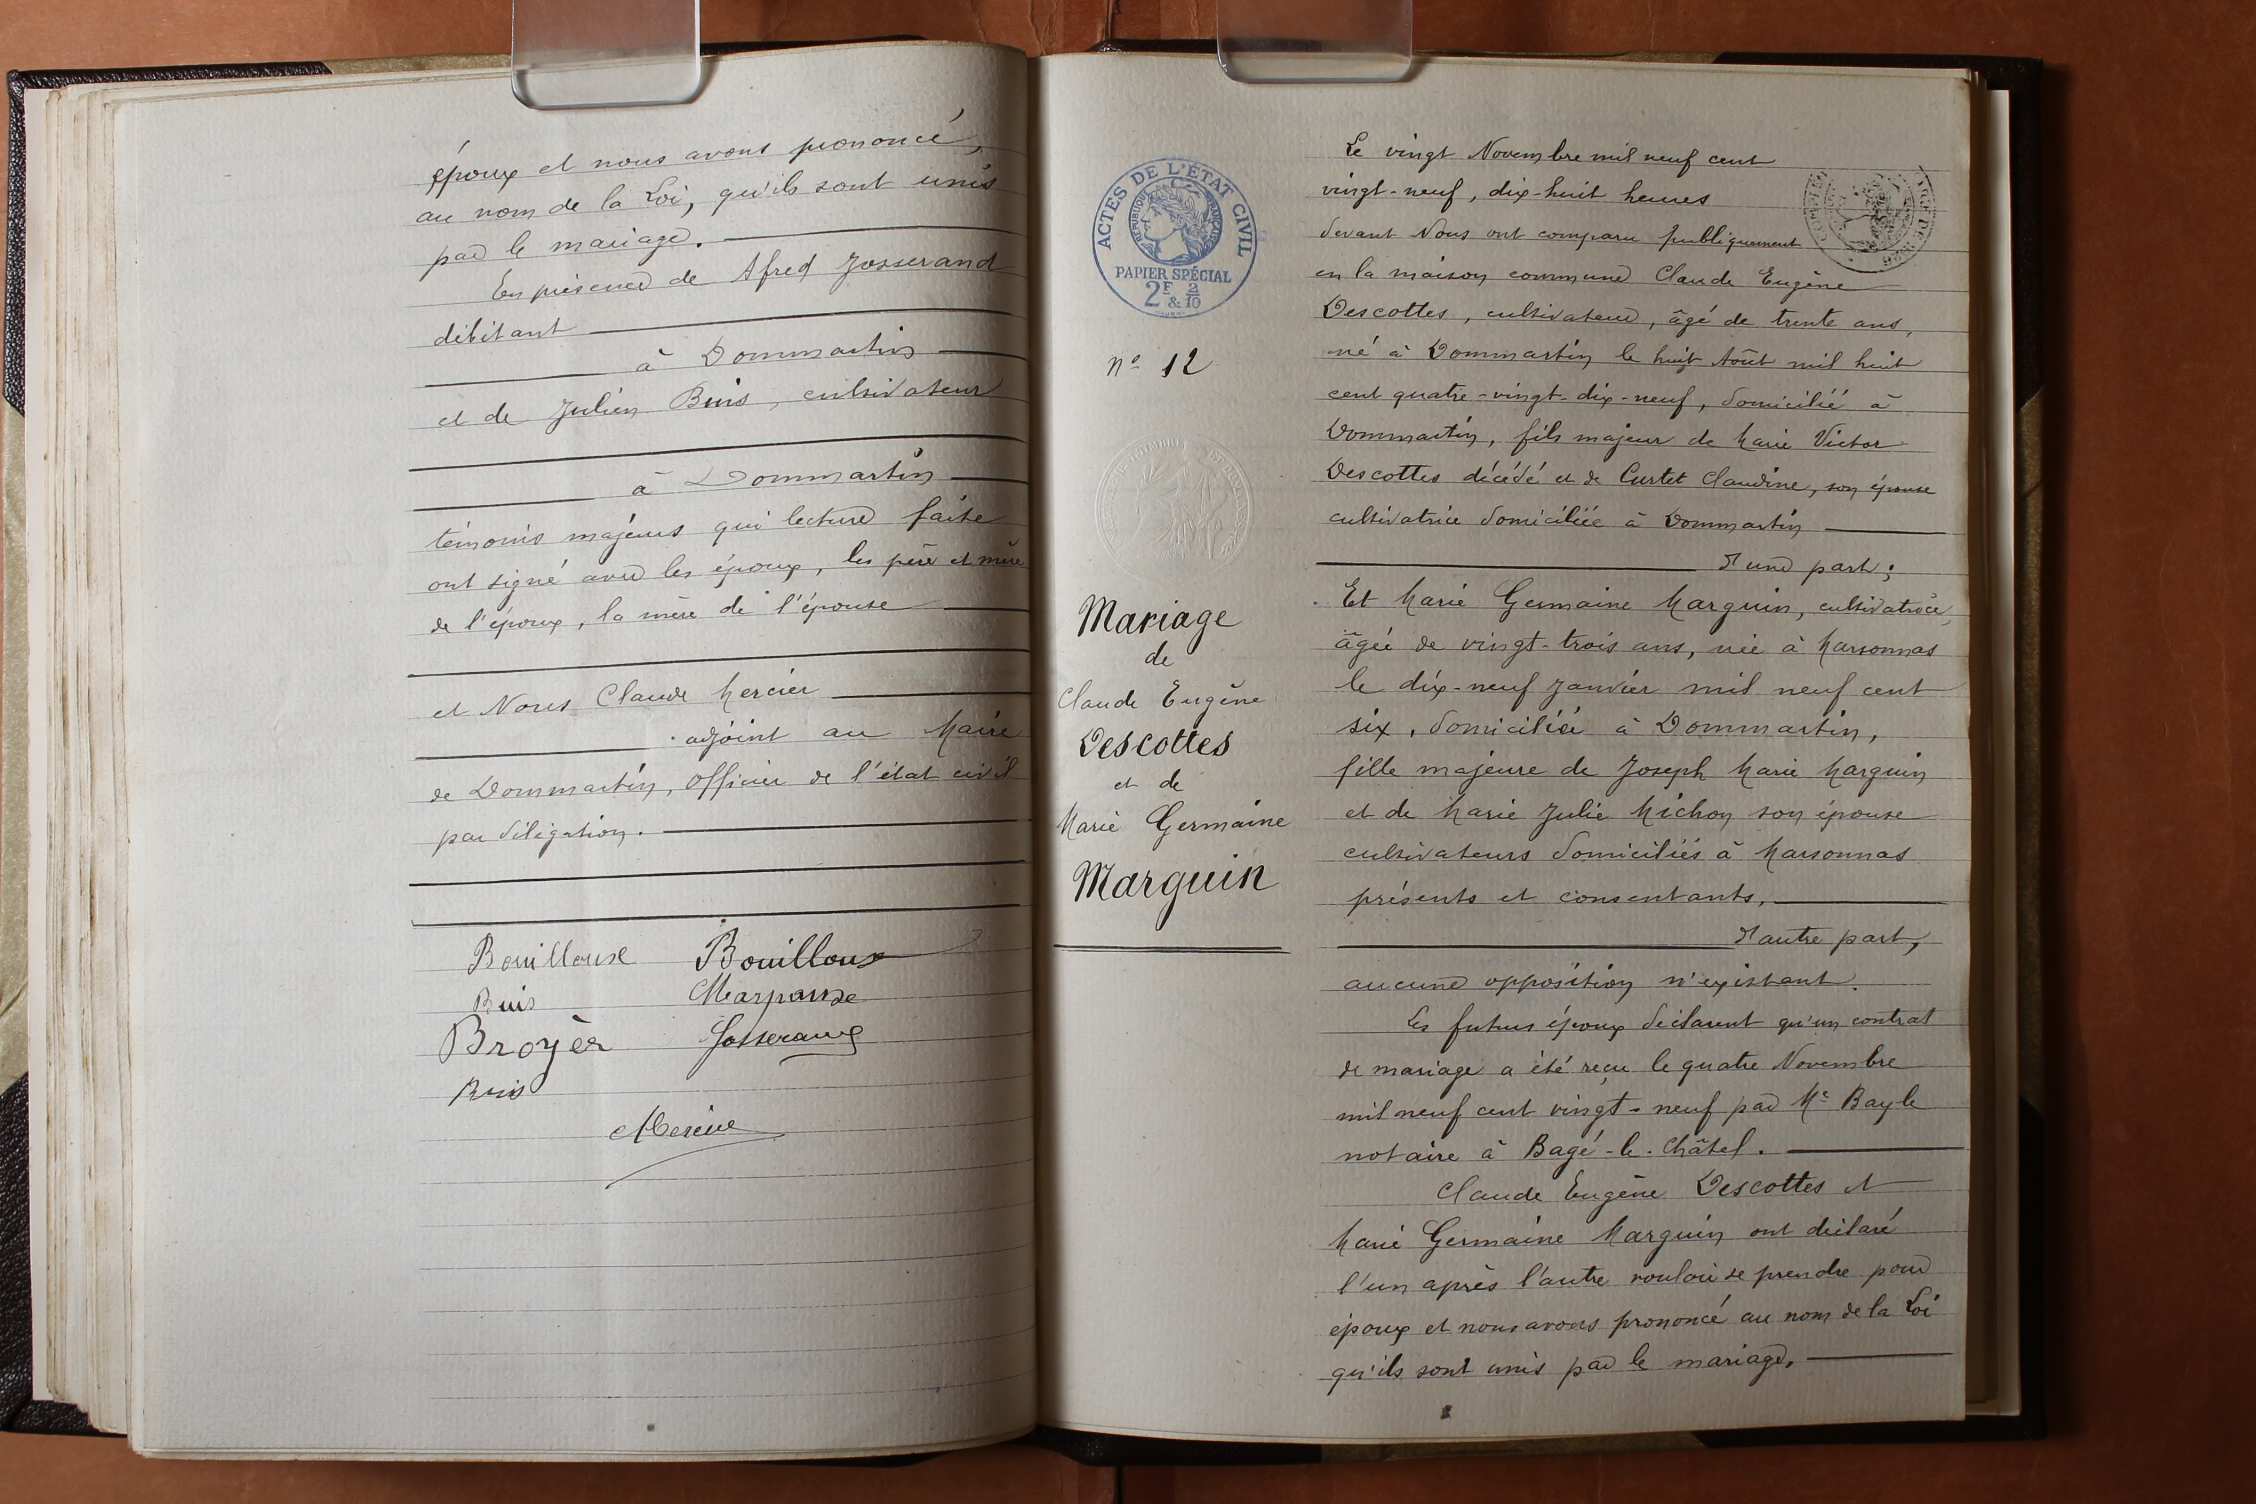 époux et nous avons prononcé,
au nom de la Loi, qu'ils sont unis
par le mariage.
En présence de Afred Josserand
débitant
à Dommartin
et de Julien Buis, cultivateur
à Dommartin
témoins majeurs qui lecture faite
ont signé avec les époux, les père et mère
de l'époux, la mère de l'épouse
et Nous Claude Mercier
adjoint au Maire
de Dommartin, Officier de l'état civil
par délégation.
Bouilloux Bouilloux
Buis
Broyer Josserand
Buis
Mercier
ACTES DE L'ETAT CIVIL
REPUBLIQUE FRANCAISE
PAPIER SPÉCIAL
2F & 2/10
No 12
Mariage
de
Claude Eugène
Descottes
et de
Marie Germaine
Marguin
Le vingt Novembre mil neuf cent
vingt-neuf, dix-huit heures
devant Nous ont comparu publiquement
en la maison commune Claude Eugène
Descottes, cultivateur, âgé de trente ans,
né à Dommartin le huit Août mil huit
cent quatre-vingt-dix-neuf, domicilié à
Dommartin, fils majeur de Marie Victor
Descottes décédé et de Curtet Claudine, son épouse
cultivatrice domiciliée à Dommartin
d'une part;
Et Marie Germaine Marguin, cultivatrice,
âgée de vingt-trois ans, née à Marsonnas
le dix-neuf Janvier mil neuf cent
six, domiciliée à Dommartin,
fille majeure de Joseph Marie Marguin
et de Marie Julie Michon son épouse
cultivateurs domiciliés à Marsonnas
présents et consentants,
d'autre part,
aucune opposition n'existant.
Les futurs époux déclarent qu'un contrat
de mariage a été reçu le quatre Novembre
mil neuf cent vingt-neuf par Me Bayle
notaire à Bagé-le-Châtel.
Claude Eugène Descottes et
Marie Germaine Marguin ont déclaré
l'un après l'autre vouloir se prendre pour
époux et nous avons prononcé au nom de la Loi
qu'ils sont unis par le mariage.